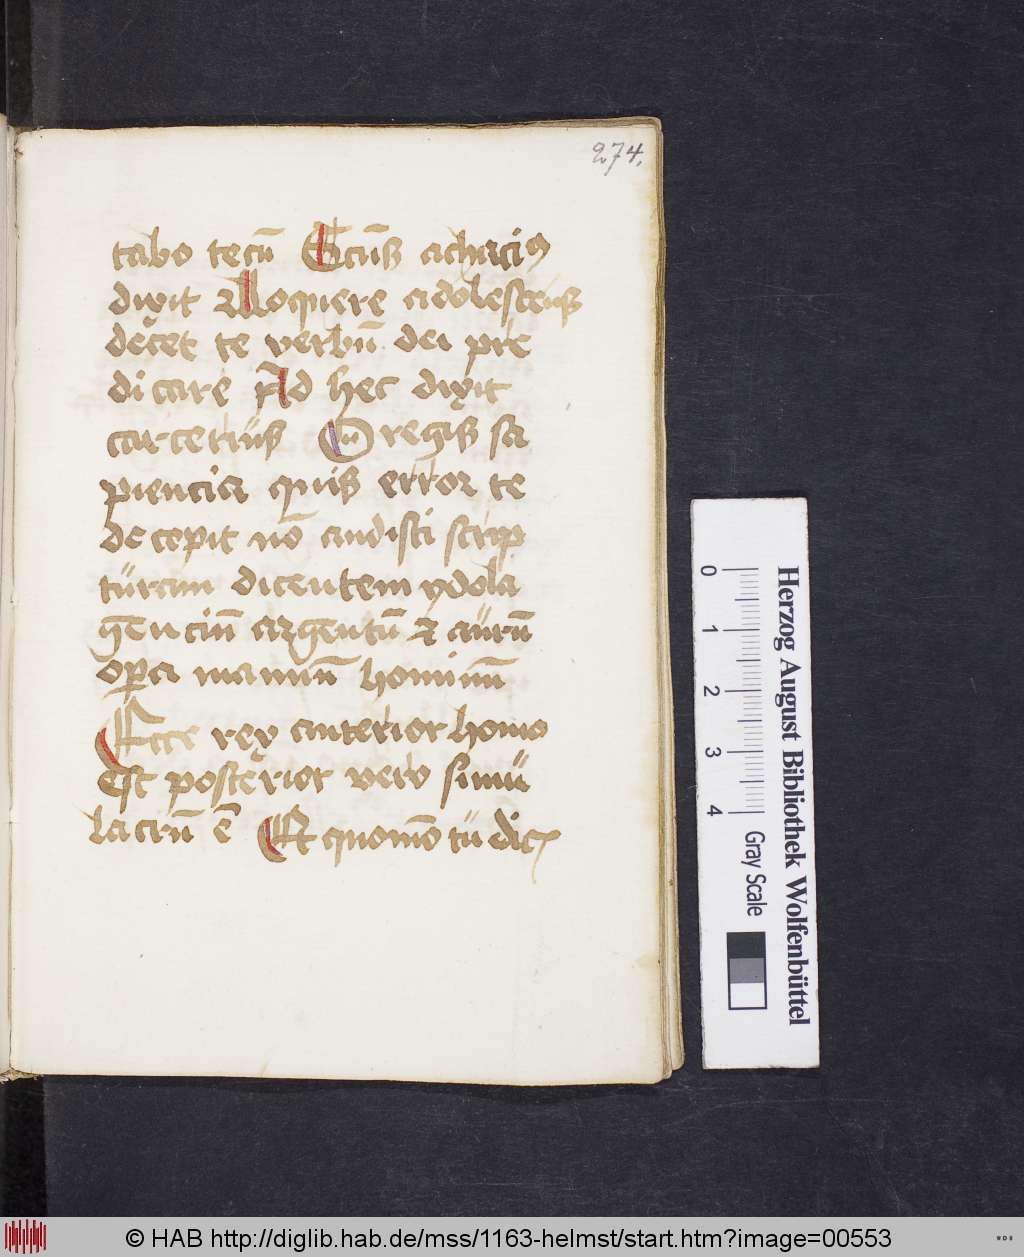 274.
tabo tecū Scūs achacius
dixit Alloquere adolescens
decet te verbū dei pre
dicare Ad hec dixit
carcerius O regis sa
piencia quis error te
decepit nō audisti scrip
turam dicentem ydola
genciū argentū et aurū
opera manuū hominū
Ecce rex anterior homo
est posterior vero simu
lacrū ē Et quomō tu dic
0 1 2 3 4
Gray Scale
Herzog August Bibliothek Wolfenbüttel
© HAB http://diglib.hab.de/mss/1163-helmst/start.htm?image=00553